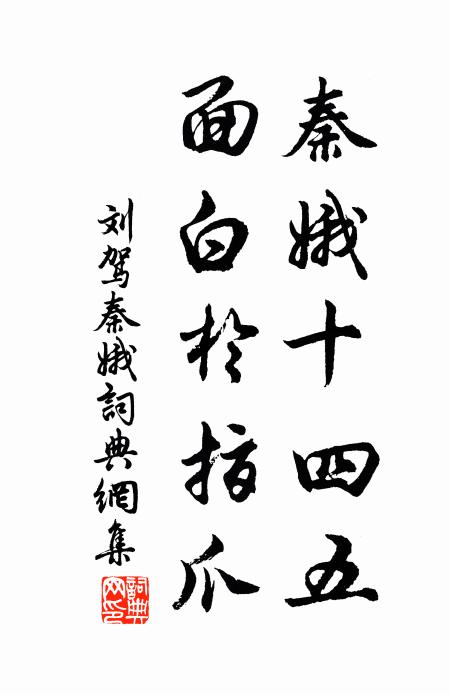 秦娥十四五
面白於指爪
刘驾秦娥詞典網集
詞典网印